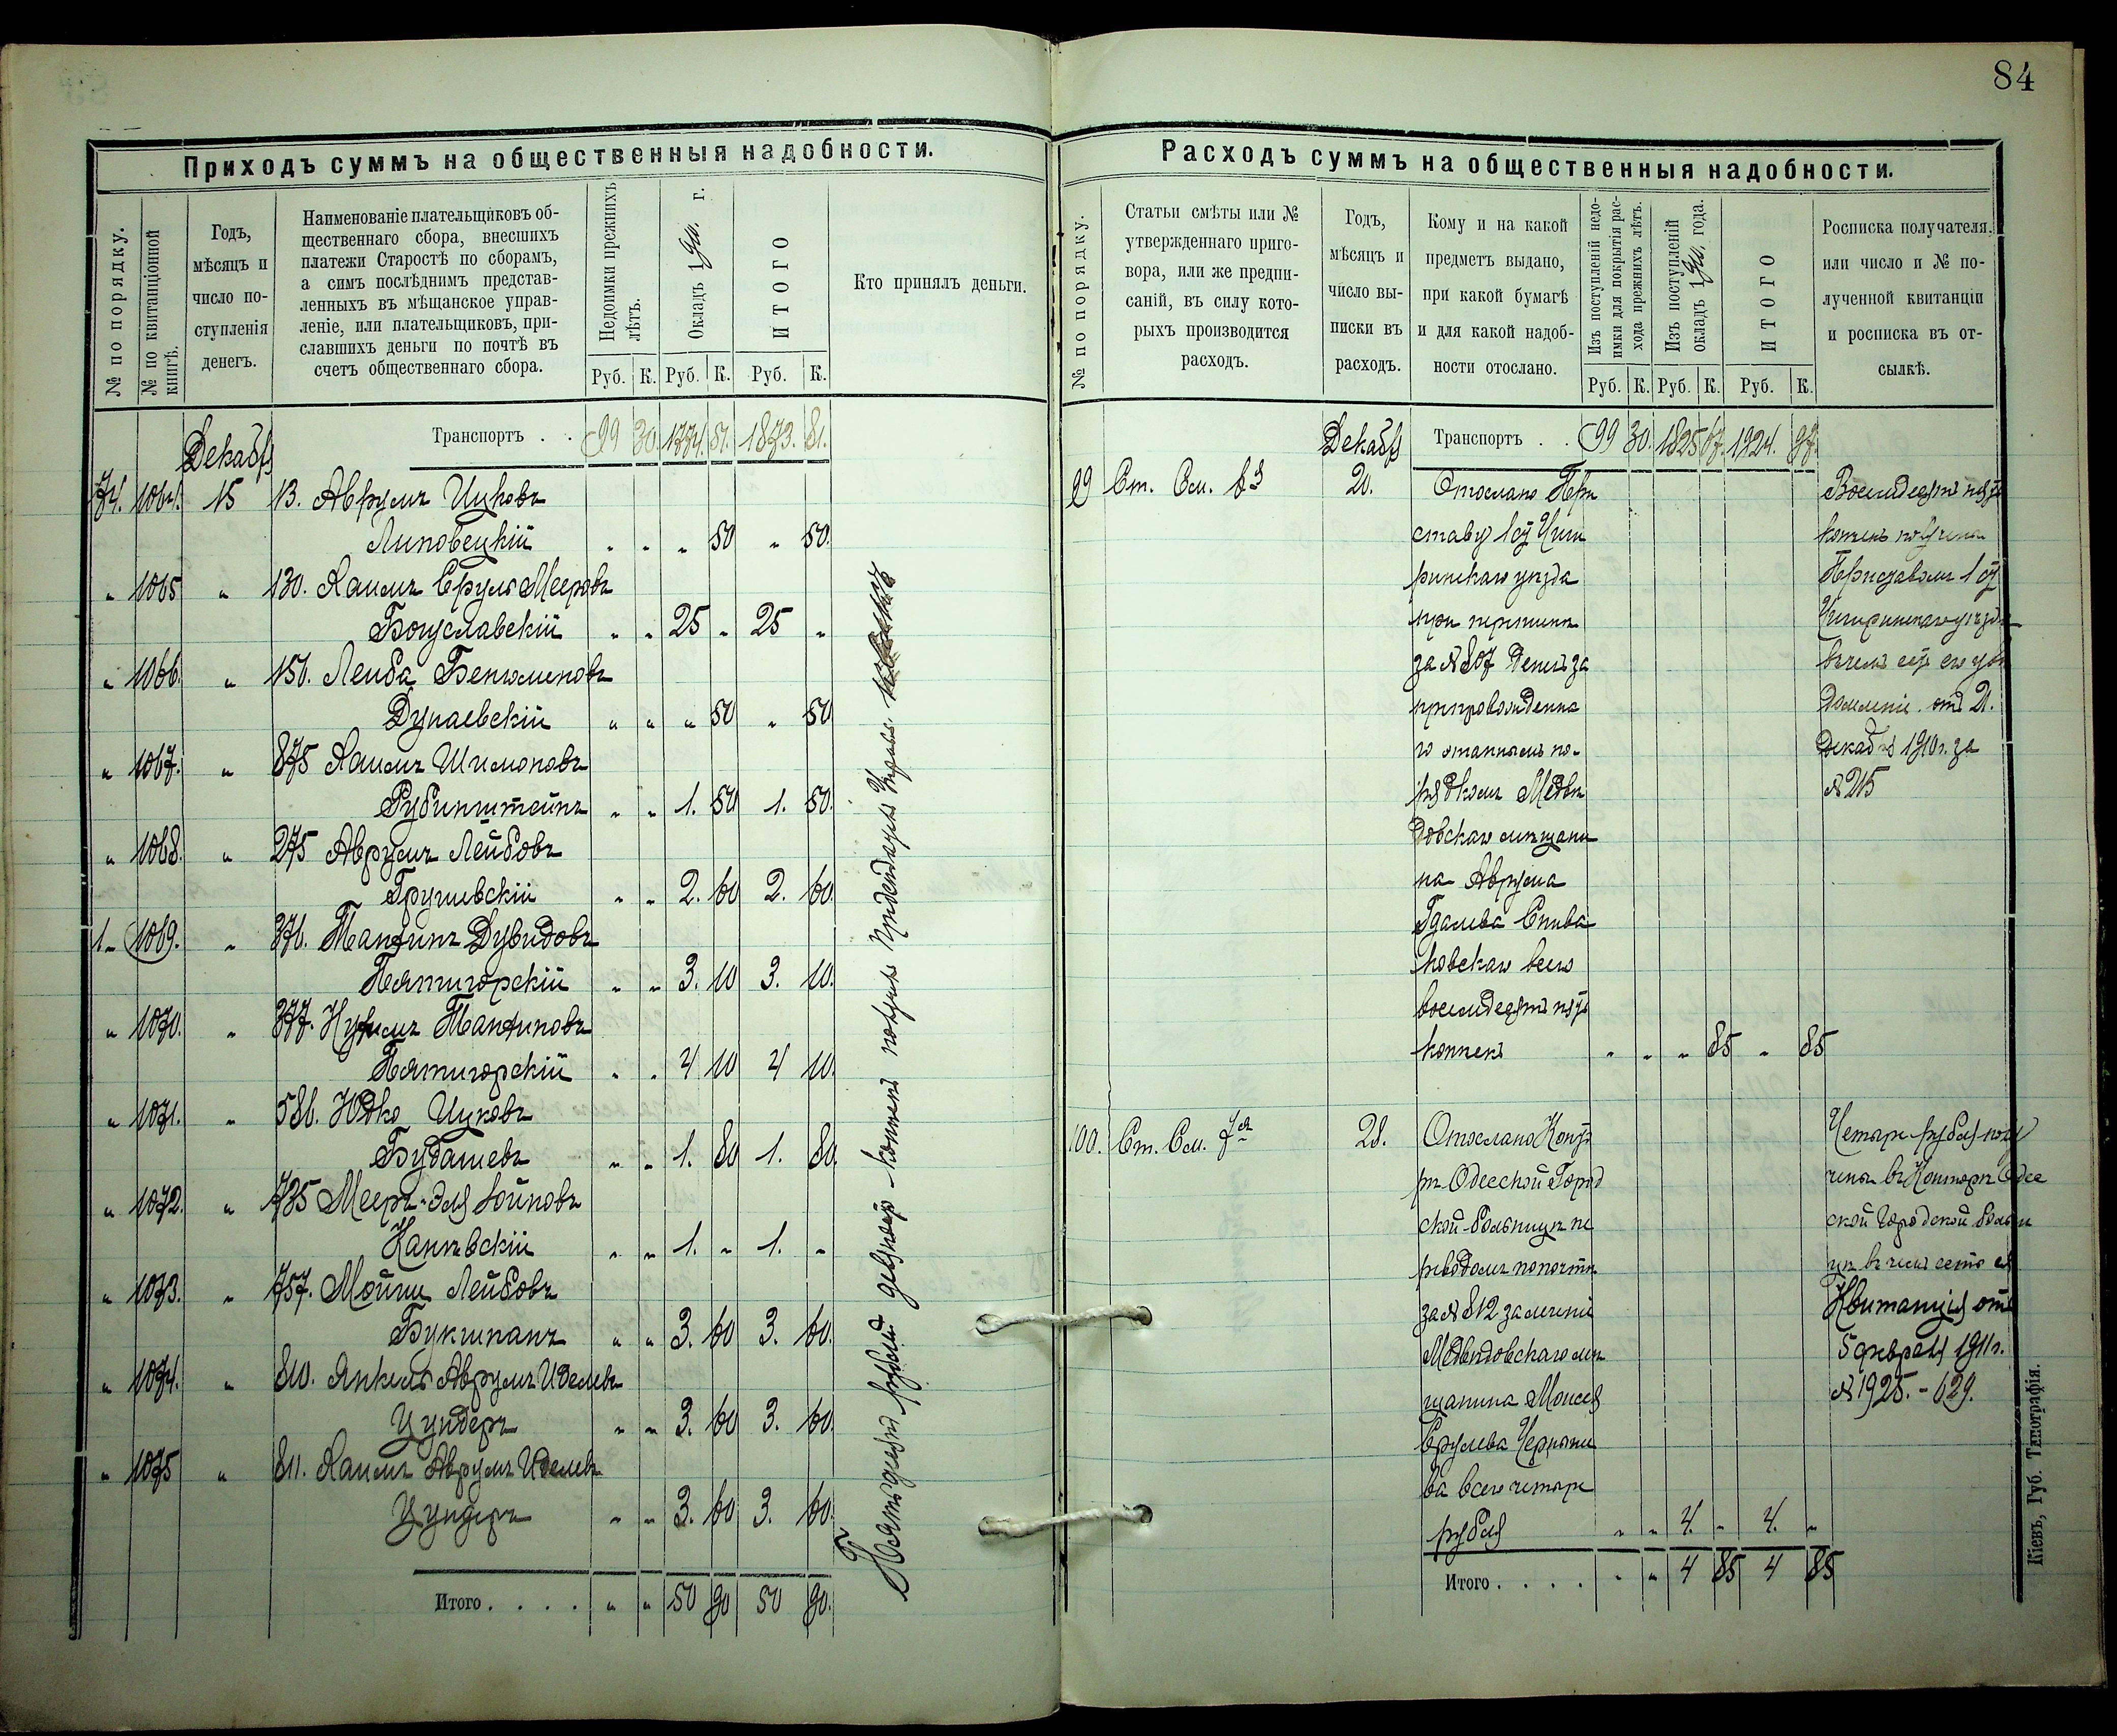 84
Приходъ суммъ на общественныя надобности.
№ по порядку.
№ по квитанціонной
книгѣ.
Годъ,
мѣсяцъ и
число по-
ступленія
денегъ.
Наименованіе плательщиковъ об-
щественнаго сбора, внесшихъ
платежи Старостѣ по сборамъ,
а симъ послѣднимъ представ-
ленныхъ въ мѣщанское управ-
леніе, или плательщиковъ, при-
славшихъ деньги по почтѣ въ
счетъ общественнаго сбора.
Недоимки прежнихъ
лѣтъ.
Окладъ 1910 г.
ИТОГО
Кто принялъ деньги.
Руб. К. Руб. К. Руб. К.
Декабр
Транспортъ . . 99 30. 1774. 51. 1873. 81.
74. 1064. 15 13. Аврумъ Ицковъ
Липовецкій " " " 50 " 50.
" 1065 " 130. Хаимъ Сруль Мееровъ
Богуславскій " " 25 " 25 "
" 1066. " 156. Лейба Беньоминовъ
Дунаевскій " " " 50 " 50
" 1067. " 878 Хаимъ Шимоновъ
Рубинштейнъ " " 1. 50 1. 50.
" 1068. " 275 Аврумъ Лейбовъ
Грушевскій " " 2. 60 2. 60.
1 " 1069. " 376. Танхинъ Дувидовъ
Пятигорскій " " 3. 10 3. 10.
" 1070. " 377. Нухимъ Танхиновъ
Пятигорскій " " 4 10 4 10.
" 1071. " 586. Юдко Ицковъ
Будашевъ " " 1. 80 1. 80.
" 1072. " 735 Мееръ-Эля
Каневскій " " 1. " 1. "
" 1073. " 757. Мойше Лейбовъ
Букшпанъ " " 3. 60 3. 60.
" 1074. " 810. Янкель Аврумъ Иделевъ
Цундеръ " " 3. 60 3. 60.
" 1075 " 811. Хаимъ Аврумъ Иделевъ
Цундеръ " " 3. 60 3. 60.
Итого . . . . " " 50 90 50 90.
Пятьдесят рублей девяносто копеек
Расходъ суммъ на общественныя надобности.
№ по порядку.
Статьи смѣты или №
утвержденнаго приго-
вора, или же предпи-
саній, въ силу кото-
рыхъ производится
расходъ.
Годъ,
мѣсяцъ и
число вы-
писки въ
расходъ.
Кому и на какой
предметъ выдано,
при какой бумагѣ
и для какой надоб-
ности отослано.
Изъ поступленій недо-
имки для покрытія рас-
хода прежнихъ лѣтъ.
Изъ поступленій
окладъ 1910 года.
ИТОГО
Росписка получателя,
или число и № по-
лученной квитанціи
и росписка въ от-
сылкѣ.
Руб. К. Руб. К. Руб. К.
Декабр
Транспортъ . . 99 30. 1825 67. 1924. 97.
99 Ст. См. 20. Отослано При
ставу 1 Чиги
ринскаго уѣзда
при
за № 807 деньги за
препровожденна
го этапнымъ по-
рядкомъ Медвѣ
довскаго мѣщани
на Аврума
Гдалева Спива
ковскаго всего
восемьдесятъ пять
копѣекъ " " " 85 " 85
Восемьдесятъ пять
копѣекъ получены
Приставомъ 1
Чигиринскаго уѣзда
въ чемъ есть его увѣ
домленіе отъ 21.
Декабря 1910 г. за
№ 215
100. Ст. См. 7я 28. Отослано Конто
рѣ Одесской Город
ской больницѣ пе
реводомъ по почтѣ
за № 812 за леченіе
Медвѣдовскаго мѣ
щанина Моисея
Срулева Черня
ва всего четыре
рубля " " 4. " 4. "
Четыре рубля полу
чены въ Конторѣ Одес
ской Городской больн
цѣ въ чемъ есть ея
Квитанція отъ
5 февраля 1911 г.
№ 1925. - 629.
Итого . . . . " " 4 85 4 85
Кіевъ, Губ. Типографія.